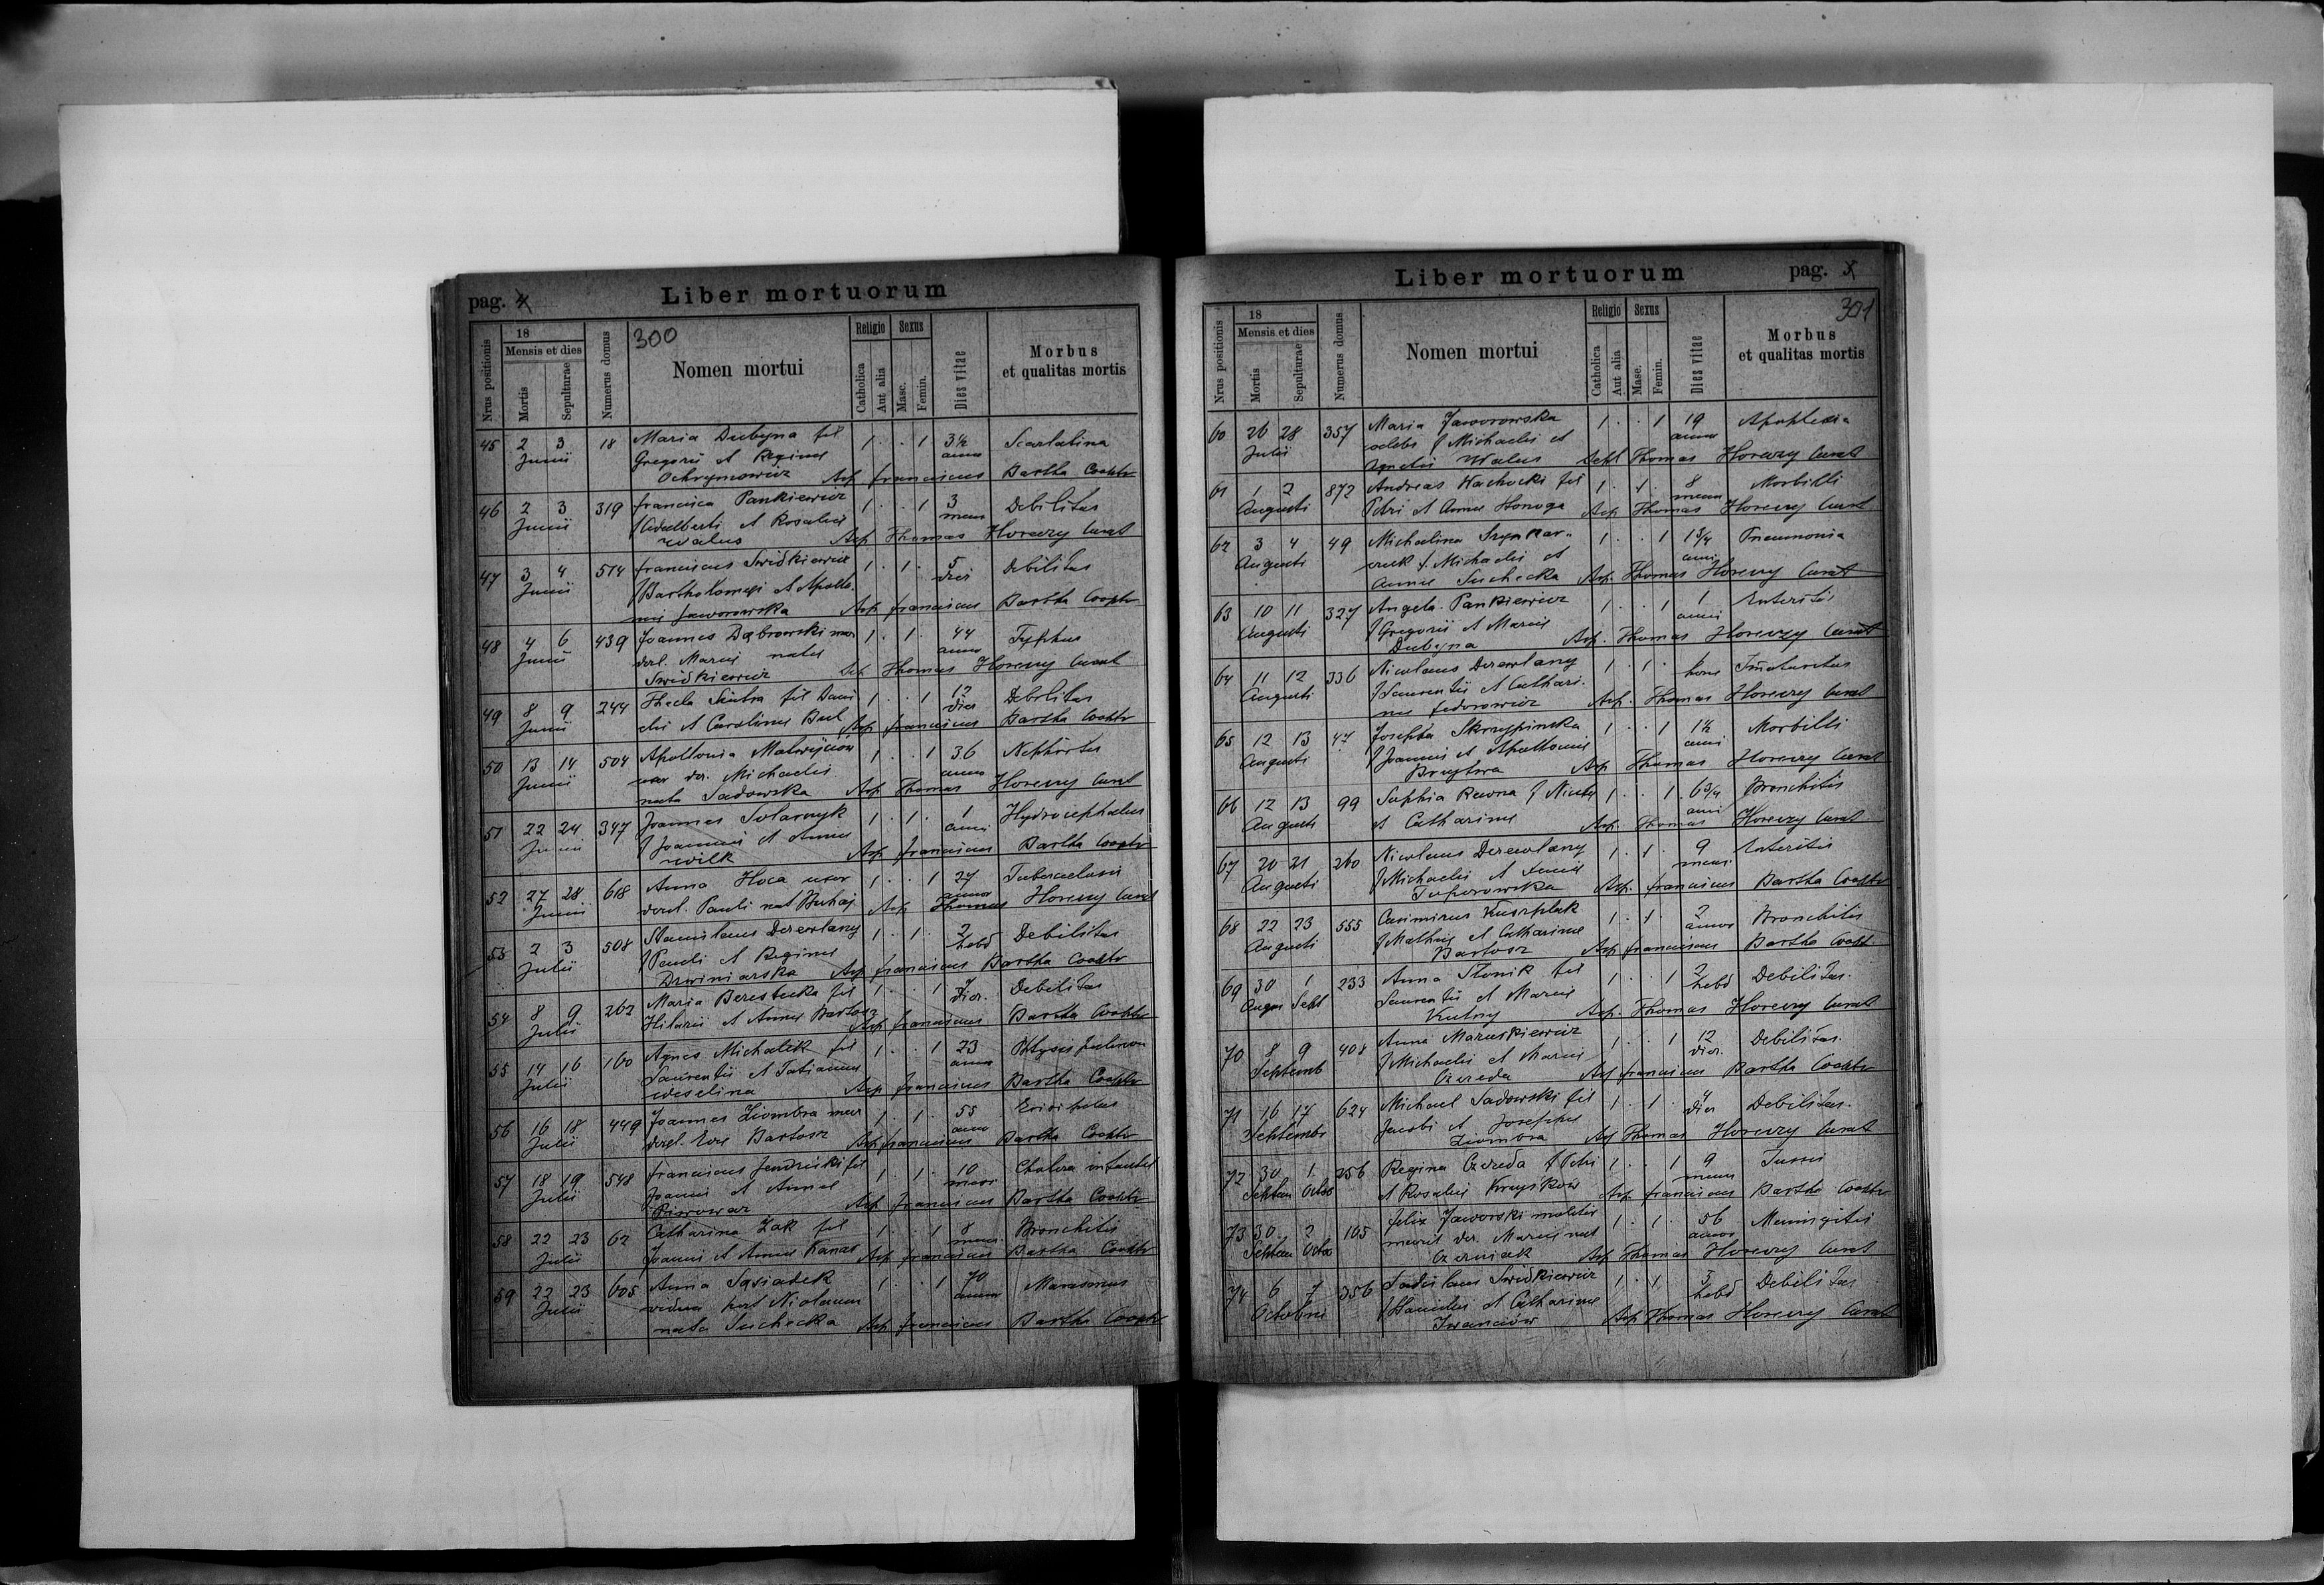 pag. 4
Liber mortuorum
300
Nrus positionis
18
Mensis et dies
Mortis
Sepulturae
Numerus domus
Nomen mortui
Religio
Catholica
Aut alia
Sexus
Masc.
Femin.
Dies vitae
Morbus
et qualitas mortis
45 2 3 18 Maria Dubyna fil 1 . . 1 3½ Scarlatina
Junii Gregorii et Regina anno
Ochrymowicz Asp franciscus Bartha Cooptr
46 2 3 319 francisca Pankiewicz 1 . . 1 3 Debilitas
Junii f Adalberti et Rosalia mens
Walus Asp Thomas Horeczy Curat
47 3 4 514 franciscus Swidkiewicz 1 . 1 . 5 Debilitas
Junii f Bartholomaei et Apollo dies
nia Jaworowska Asp franciscus Bartha Cooptr
48 4 6 439 Joannes Dąbrowski mar 1 . 1 . 44 Typhus
Junii derel. Maria nata anno
Swidkiewicz Asp Thomas Horeczy Curat
49 8 9 244 Thecla fil Dani 1 . . 1 12 Debilitas
Junii elis et Carolina Bul dies
Asp franciscus Bartha Cooptr
50 13 14 504 Apollonia 1 . . 1 36 Nephritis
Junii uxor der. Michaelis anno
nata Sadowska Asp Thomas Horeczy Curat
51 22 24 347 Joannes Solarczyk 1 . 1 . 1 Hydrocephalus
Junii f Joannis et Anna anni
Wilk Asp franciscus Bartha Cooptr
52 27 28 618 Anna Hoca uxor 1 . . 1 27 Tuberculosis
Junii derel. Pauli nat Buhaj annor
Asp Thomas Horeczy Curat
53 2 3 508 Stanislaus Derewlany 1 . 1 . 2 Debilitas
Julii f Pauli et Regina hebd
Dzwiniarska Asp franciscus Bartha Cooptr
54 8 9 262 Maria Berestecka fil 1 . . 1 7 Debilitas
Julii Hilarii et Anna Bartosz dier.
Asp franciscus Bartha Cooptr
55 14 16 160 Agnes Michalek fil 1 . . 1 23 Phtysis pulmon
Julii Laurentii et Tatianna anno
Weselina Asp franciscus Bartha Cooptr
56 16 18 449 Joannes Ziombra mar 1 . 1 . 55 Erisipelas
Julii derel. Eva Bartosz anno
Asp franciscus Bartha Cooptr
57 18 19 548 franciscus fil 1 . 1 . 10 Cholera infantil
Julii Joannis et Anna mens
Piwowar Asp franciscus Bartha Cooptr
58 22 23 62 Catharina Żak fil 1 . . 1 8 Bronchitis
Julii Joannis et Anna Kanas mens
Asp franciscus Bartha Cooptr
59 22 23 605 Anna Sąsiadek 1 . . 1 70 Marasmus
Julii vidua post Nicolaum annor
nata Suchecka Asp franciscus Bartha Cooptr
Liber mortuorum
pag. 5
301
Nrus positionis
18
Mensis et dies
Mortis
Sepulturae
Numerus domus
Nomen mortui
Religio
Catholica
Aut alia
Sexus
Masc.
Femin.
Dies vitae
Morbus
et qualitas mortis
60 26 28 357 Maria Jaworowska 1 . . 1 19 Apoplexia
Julii celebs f Michaelis et anno
Walus Thomas Horeczy Curat
61 1 2 872 Andreas Wachocki fil 1 . 1 . 8 Morbilli
Augusti Petri et Anna Honoga mens
Asp Thomas Horeczy Curat
62 3 4 49 Michalina 1 . . 1 1¾ Pneumonia
Augusti f. Michaelis et anni
Anna Suchecka Asp. Thomas Horeczy Curat
63 10 11 327 Angela Pankiewicz 1 . . 1 1 Enteritis
Augusti f Gregorii et Maria anni
Dubyna Asp. Thomas Horeczy Curat
64 11 12 336 Nicolaus Derewlany 1 . 1 . 1 Imaturitas
Augusti f Laurentii et Cathari hora
na fedorowicz Asp. Thomas Horeczy Curat
65 12 13 47 Josepha Skrzypinska 1 . . 1 1½ Morbilli
Augusti f Joannis et Apollonia anni
Asp Thomas Horeczy Curat
66 12 13 99 Sophia Rewna f 1 . . 1 6¾ Bronchitis
Augusti et Catharina anni
Asp. Thomas Horeczy Curat
67 20 21 260 Nicolaus Derewlany 1 . 1 . 9 Enteritis
Augusti f Michaelis et mens.
Toporowska Asp. franciscus Bartha Cooptr
68 22 23 555 Casimirus 1 . 1 . 2 Bronchitis
Augusti f Mathia et Catharina annor
Bartosz Asp franciscus Bartha Coopt
69 30 1 233 Anna Słonik fil 1 . . 1 2 Debilitas.
Augus Sept Laurentii et Maria hebd
Kutny Asp. Thomas Horeczy Curat
70 8 9 408 Anna Maruskiewicz 1 . . 1 12 Debilitas.
Septemb f Michaelis et Maria dier.
Czereda Asp franciscus Bartha Cooptr
71 16 17 624 Michael Sadowski fil 1 . 1 . 4 Debilitas.
Septembr Jacobi et Josepha dier
Ziombra Asp Thomas Horeczy Curat
72 30 1 256 Regina Czereda f Petri 1 . . 1 9 Tussis
Septem Octob et Rosalia mens
Asp. franciscus Bartha Cooptr
73 30 2 105 felix Jaworski 1 . 1 . 56 Meningitis
Septem Octob marit der. Maria nat annor
Czerniak Asp Thomas Horeczy Curat
74 6 7 356 Ladislaus Swidkiewicz 1 . 1 . 3 Debilitas
Octobris f Danielis et Catharina hebd
Iwanciów Asp Thomas Horeczy Curat